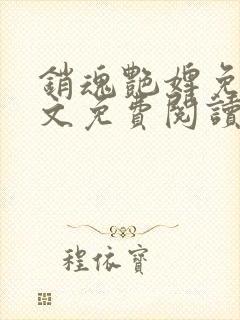 銷魂艷婬免
文免費閱讀
程依寶